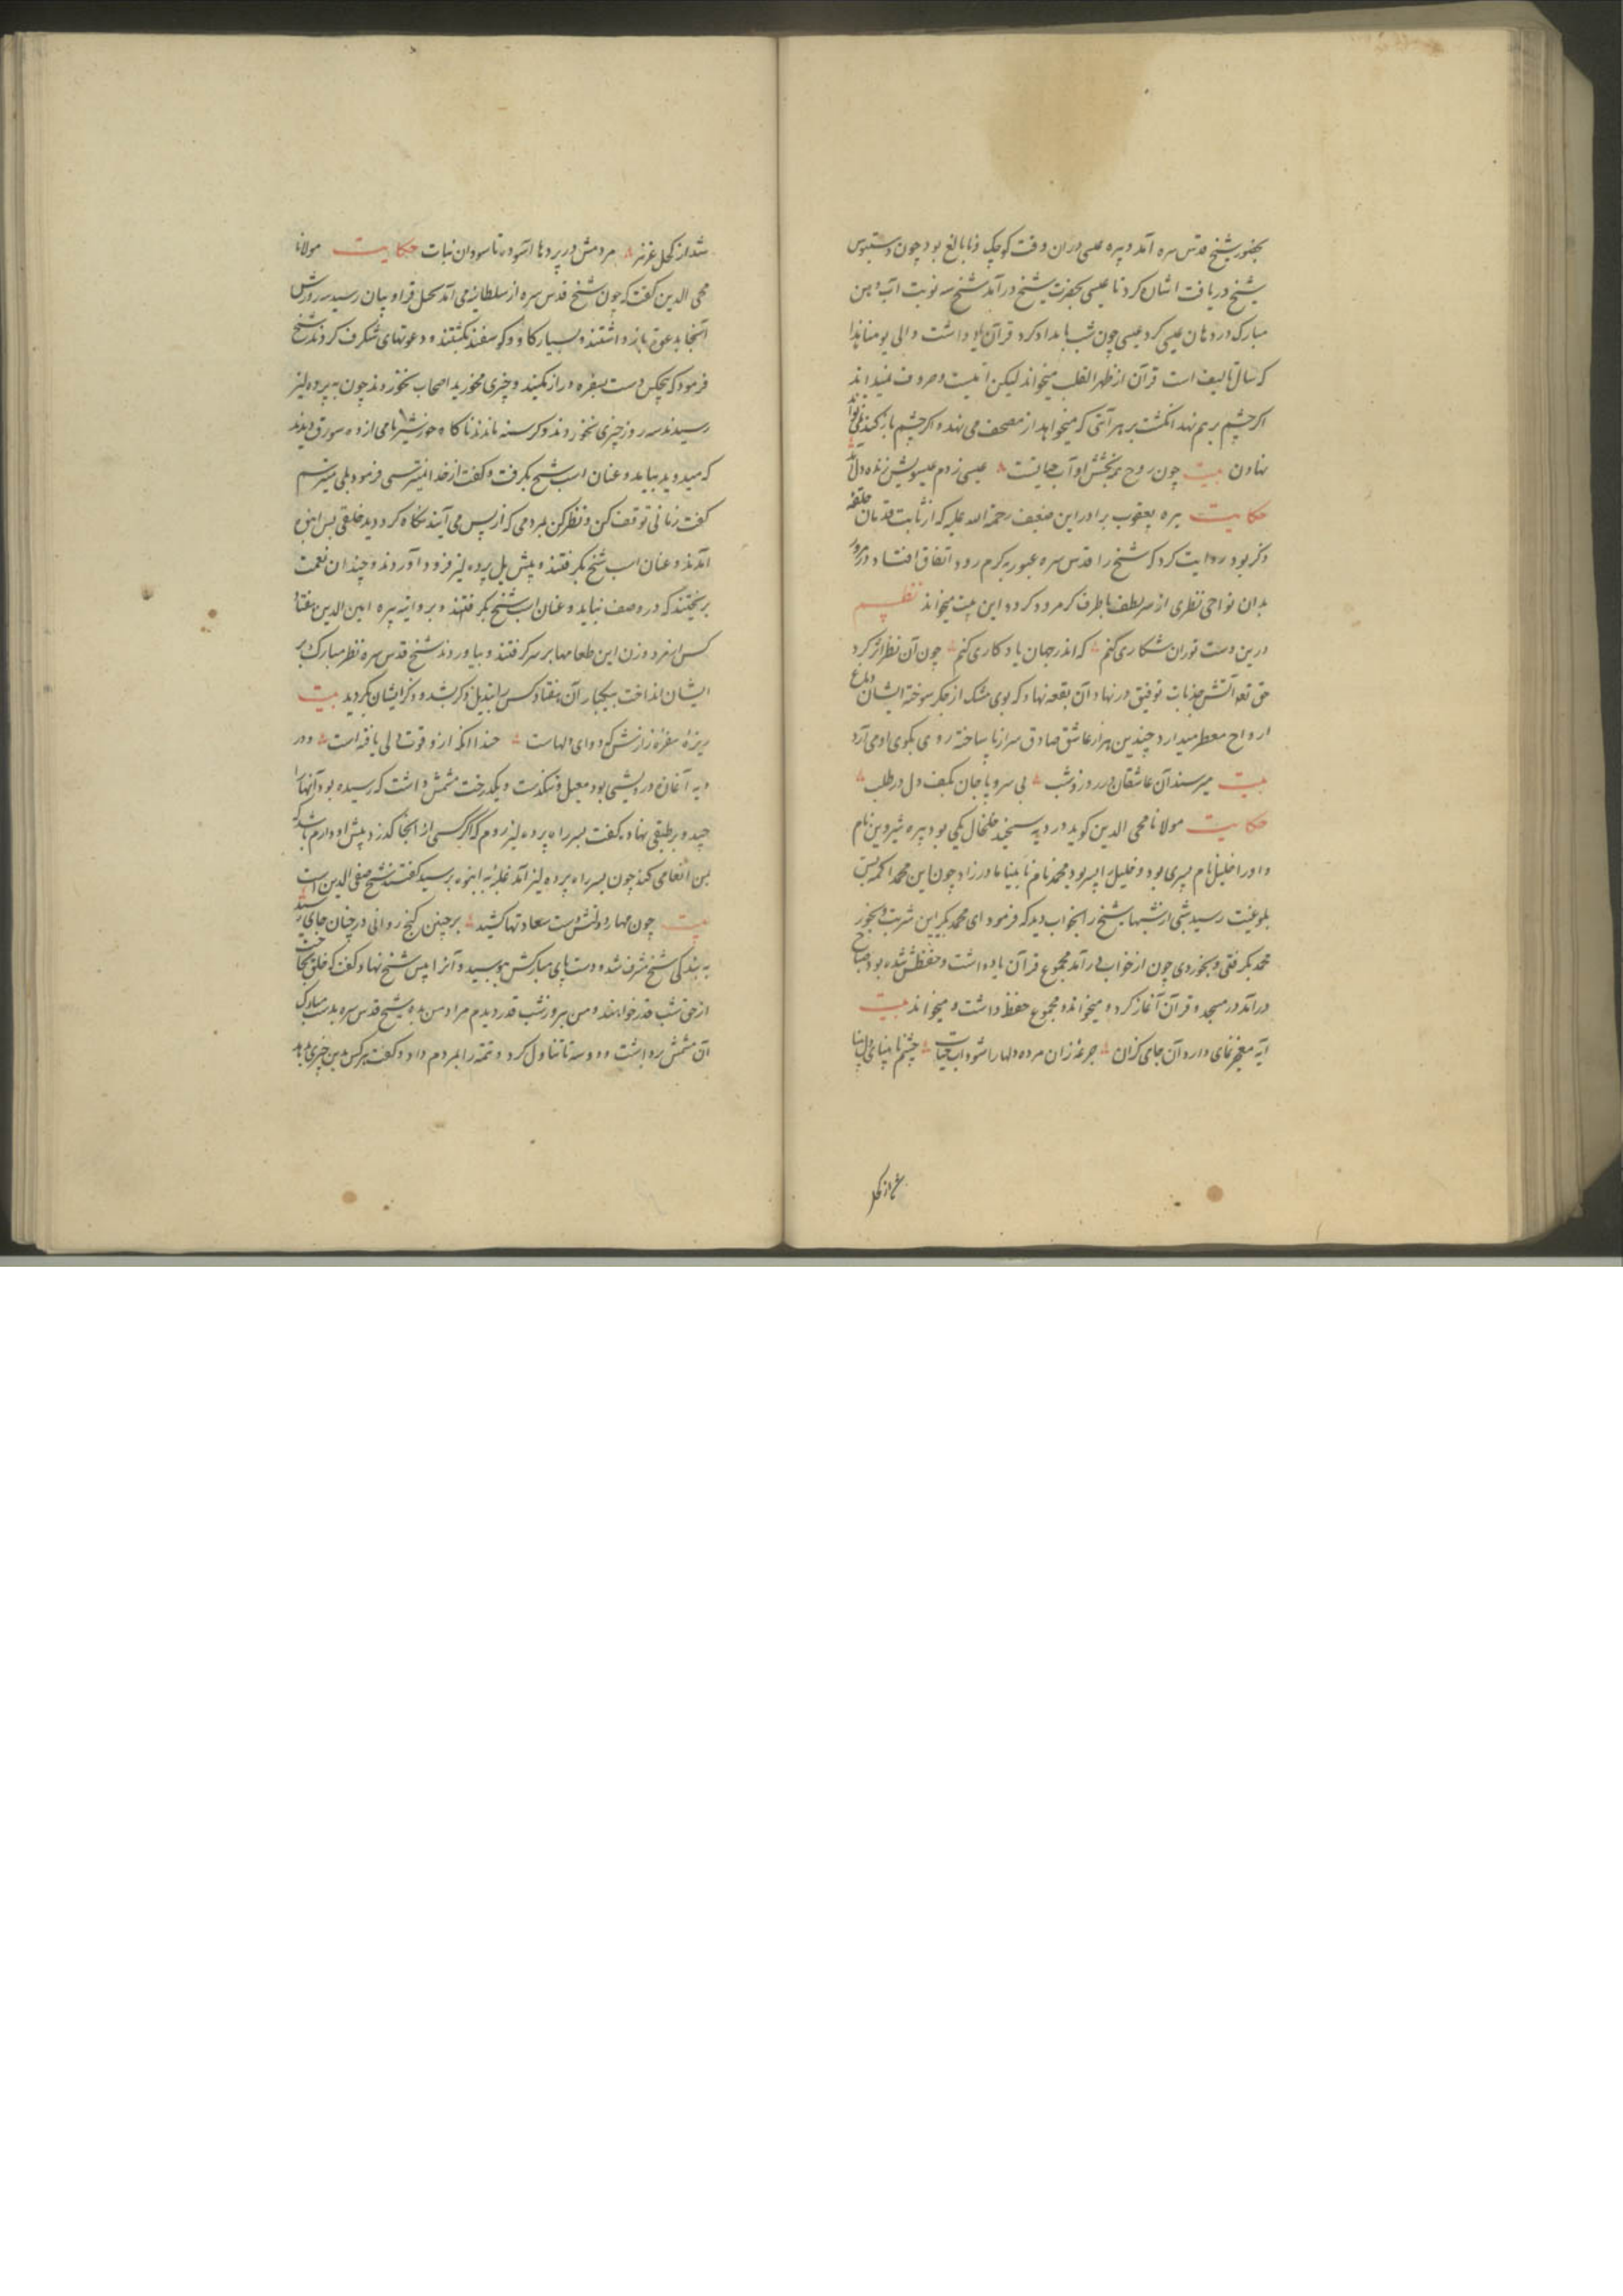 بحضور شیخ قدس سره آمد و پیره عیسی در آن وقت کوچک و نابالغ بود چون دستبوس
شیخ دریافت اشان کرد تا عیسی بحضرت شیخ در آمد شیخ سه نوبت آب دهن
مبارک در دهان عیسی کرد عیسی چون شب بامداد کرد قرآن یاد داشت و الی یومنا هذا
که سال تالیف است قرآن از ظهر القلب میخواند لیکن امیست و حروف نمیداند
اکر چشم بر هم نهد انکشت بر هر آیتی که میخواهد از مصحف می نهد و اکر چشم باز کند نمی تواند
نهادن بیت چون روح همه بخشش او آب حیاتست عیسی زدم عیسویش زنده دل آمد
حکایت پیره یعقوب برادر این ضعیف رحمة الله علیه که از ثابت قدمان حلقه
ذکر بود روایت کرد که شیخ را قدس سره عبور به کرم رود اتفاق افتاد و در مرور
بدان نواحی نظری از سر لطف باطرف کرمرود کرد و این بیت میخواند نظم
درین دست توران شکاری کنم که اندر جهان یادکاری کنم چون آن نظر اثر کرد
حق تعه آتش جذبات توفیق در نهاد آن بقعه نهاد که بوی مشک از جکر سوخته ایشان دماغ
ارواح معطر میدارد چندین هزار عاشق صادق سر از پا ساخته روی بکوی او می آرد
بیت میرسند آن عاشقان در روز و شب بی سر و پا جان بکف دل در طلب
حکایت مولانا محی الدین کوید در دیه سنجید خلخال یکی بود پیره شیروین نام
و او را خلیل نام پسری بود و خلیل را پسر بود محمد نام نابینا مادرزاد چون این محمد اکمه بسن
بلوغیت رسید شبی از شبها شیخ را بخواب دید که فرمود ای محمد بکیر این شربت و بخور
محمد بکرفتی و بخوردی چون از خواب در آمد مجموع قرآن یاد داشت و حفظش شده بود صباح
در آمد در مسجد و قرآن آغاز کرد و میخواند و مجموع حفظ داشت و میخواند بیت
آیه معجز نمای دارد آن جای کزان جرعهٔ زان مرده دلها را شود آب حیات چشم نابینای دل بینا
شد از کحل
شد از کحل غزیر مردمش در پردها آسوده تا سودان نبات حکایت مولانا
محی الدین کفت که چون شیخ قدس سره از سلطانیه می آمد بمحل قراوییان رسید سه روزش
آنجا بدعوة باز داشتند و بسیار کاو و کوسفند بکشتند و دعوتهای شکرف کردند شیخ
فرمود که هیچکس دست بسفره دراز نکند و چیزی مخورید اصحاب نخوردند چون به پرده لیز
رسیدند سه روز چیزی نخوردند و کرسنه ماندند ناکاه خورشیرنامی از ده سورق دیدند
که میدوید بیامد و عنان اسب شیخ بکرفت و کفت از خدا نمیترسی فرمود بلی میترسم
کفت زمانی توقف کن و نظر کن بمردمی که از پس می آیند نکاه کرد دید خلقی بس انبوه
آمدند و عنان اسب شیخ بکرفتند و پیش پل پرده لیز فرود آوردند و چندان نعمت
بریختند که در وصف نیاید و عنان اسب شیخ بکرفتند و بروانیه پیره امین الدین هفتاد
کس از مرد و زن این طعامها بر سر کرفتند و بیاوردند شیخ قدس سره نظر مبارک بر
ایشان انداخت بیکبار آن هفتاد کس را تبدیل ذکر شد و ذکر ایشان بکردید بیت
ریزهٔ سفرهٔ رازش که دوای دلهاست حبذا آنکه ازو قوت دلی یافته است و در
دیه آغان درویشی بود معیل و تنکدست و یکدرخت مشمش داشت که رسیده بود آنها را
چید و بر طبقی نهاد کفت بسر راه پرده لیز روم که اکر کسی از آنجا کذرد پیش او دارم باشد که
بمن انعامی کند چون بسر راه پرده لیز آمد غلبهٔ انبوه برسید کفتند شیخ صفی الدین است
بیت چون مهار دولتش دست سعادتها کشید بر چنین کنج روانی در چنان جای رسید
به بندکی شیخ مشرف شد و دست و پای مبارکش ببوسید و آنرا پیش شیخ نهاد و کفت که خلق نجات
از حق شب قدر خواهند و من بروز شب قدر دیدم مراد من بده شیخ قدس سره بدست مبارک
آن مشمش برداشت و دو سه تا تناول کرد و تتمه را بمردم داد و کفت هر کس بدین چیزی بدهد